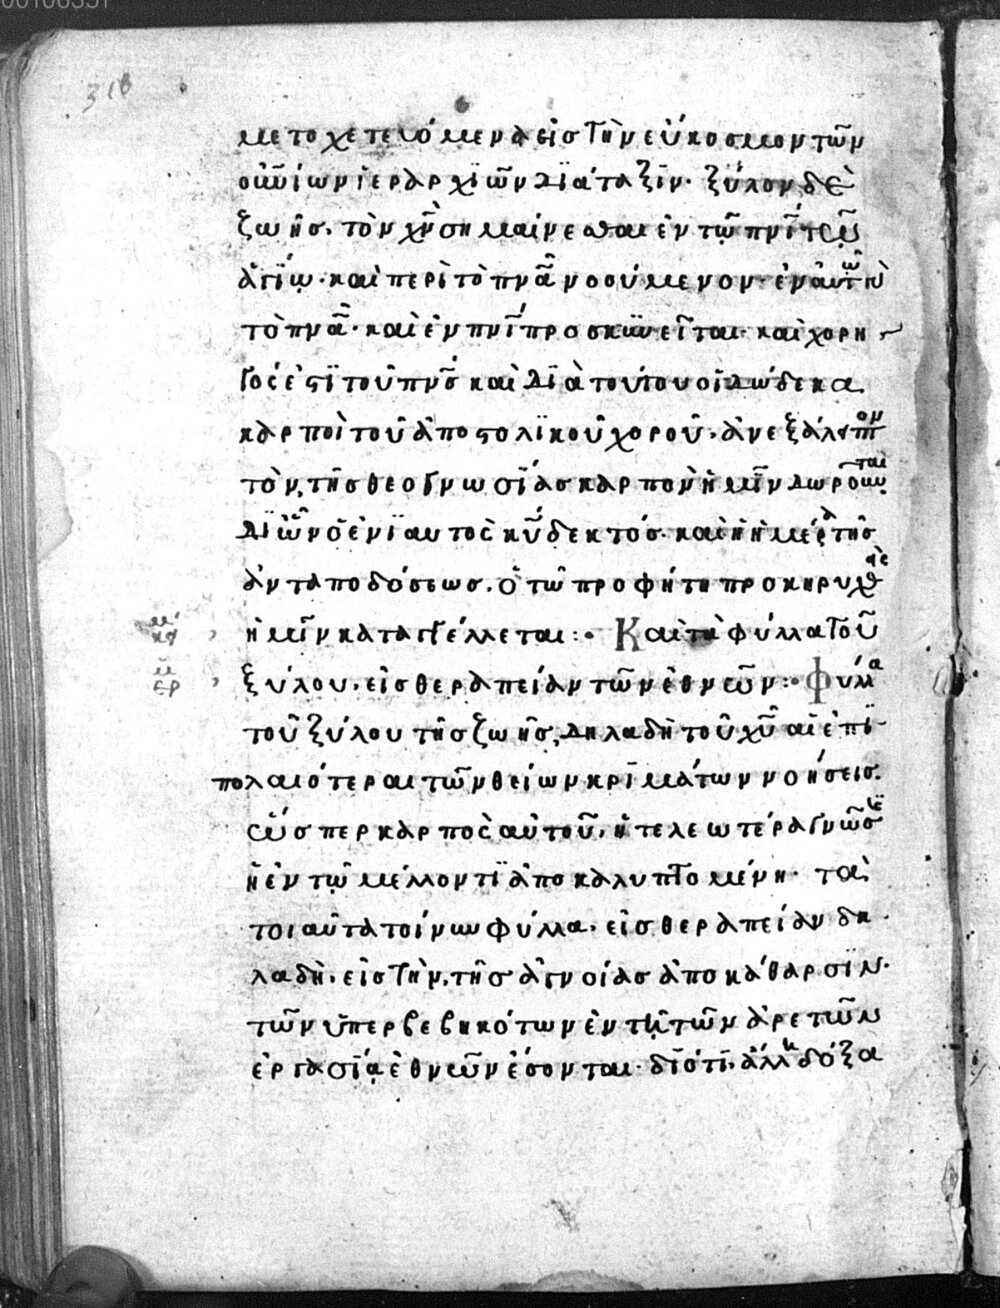 00106351
316
μετοχετευόμενα εἰς τὴν εὔκοσμον τῶν
οὐνίων ἱεραρχιῶν διάταξιν· ξύλον δὲ
ζωῆς, τὸν χν̄ σημαίνεσθαι ἐν τῷ πνῑ τῷ
ἁγίῳ· καὶ περὶ τὸ πνᾱ νοούμενον· ἐν αὐτῷ
τὸ πνᾱ· καὶ ἐν πνῑ προσκυνεῖται· καὶ χορη
γός ἐστι τοῦ πνς̄ καὶ διὰ τούτου οἱ δώδεκα
καρποὶ τοῦ ἀποστολικοῦ χοροῦ· ἀνεξάλειπτον
τὸν τῆς θεογνωσίας καρπὸν ἡμῖν δωροῦνται
δι' ὧν ὁ ἐνιαυτὸς κῡ δεκτός· καὶ ἡ ἡμέρα τῆς
ἀνταποδόσεως. ὁ τῷ προφήτῃ προκηρυχθεὶς
ἡμῖν καταγγέλλεται:· Καὶ τὰ φύλλα τοῦ
κεί
μ
ερ
ξύλου, εἰς θεραπείαν τῶν ἐθνῶν:· Φύλλα
τοῦ ξύλου τῆς ζωῆς, δηλαδὴ τοῦ χῡ αἱ ἐπι
πολαιότεραι τῶν θείων κριμάτων νοήσεις.
ὥσπερ καρπὸς αὐτοῦ, ἡ τελεωτέρα γνῶσις
ἡ ἐν τῷ μέλλοντι ἀποκαλυπτομένη· τὰ
τοιαῦτα τοίνυν φύλλα, εἰς θεραπείαν δη
λαδὴ, εἰς τὴν τῆς ἀγνοίας ἀποκάθαρσιν
τῶν ὑπερβεβηκότων ἐν τῇ τῶν ἀρετῶν
ἐργασίᾳ ἐθνῶν ἔσονται· διότι, ἄλλη δόξα